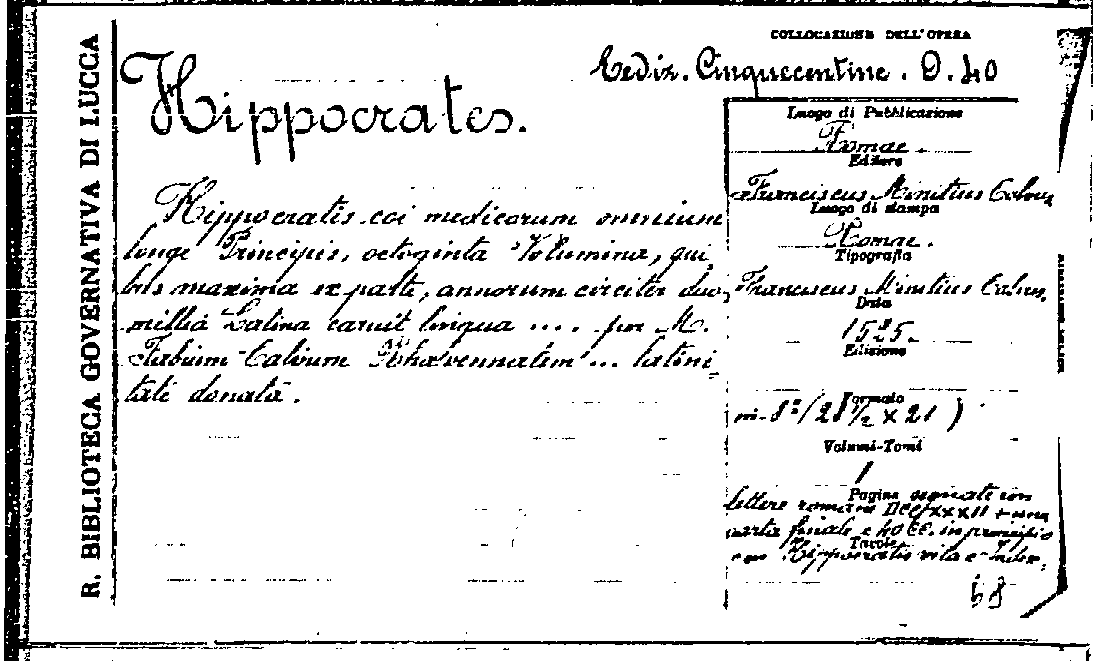 R. BIBLIOTECA GOVERNATIVA DI LUCCA
COLLOCAZIONE DELL'OPERA
Cinquecentine. D. 40
Hippocrates.
Hippocratis coi medicorum omnium
longe Principis, octoginta Volumina, qui
bus maxima ex parte, annorum circiter duo
millia Latina caruit lingua .... per M.
Fabium Calvum Rhavennatem ... latini
tati donata.
Luogo di Pubblicazione
Romae.
Editore
Franciscus Minitius Calvus
Luogo di stampa
Romae.
Tipografia
Franciscus Minitius Calvus
Data
1525.
Edizione
Formato
in-8° (28 1/2 x 21)
Volumi-Tomi
1
Pagine segnate con
lettere romane DCCXXXII + una
carta finale e 40 cc. in principio
Tavole
con Hippocratis vita e Index.